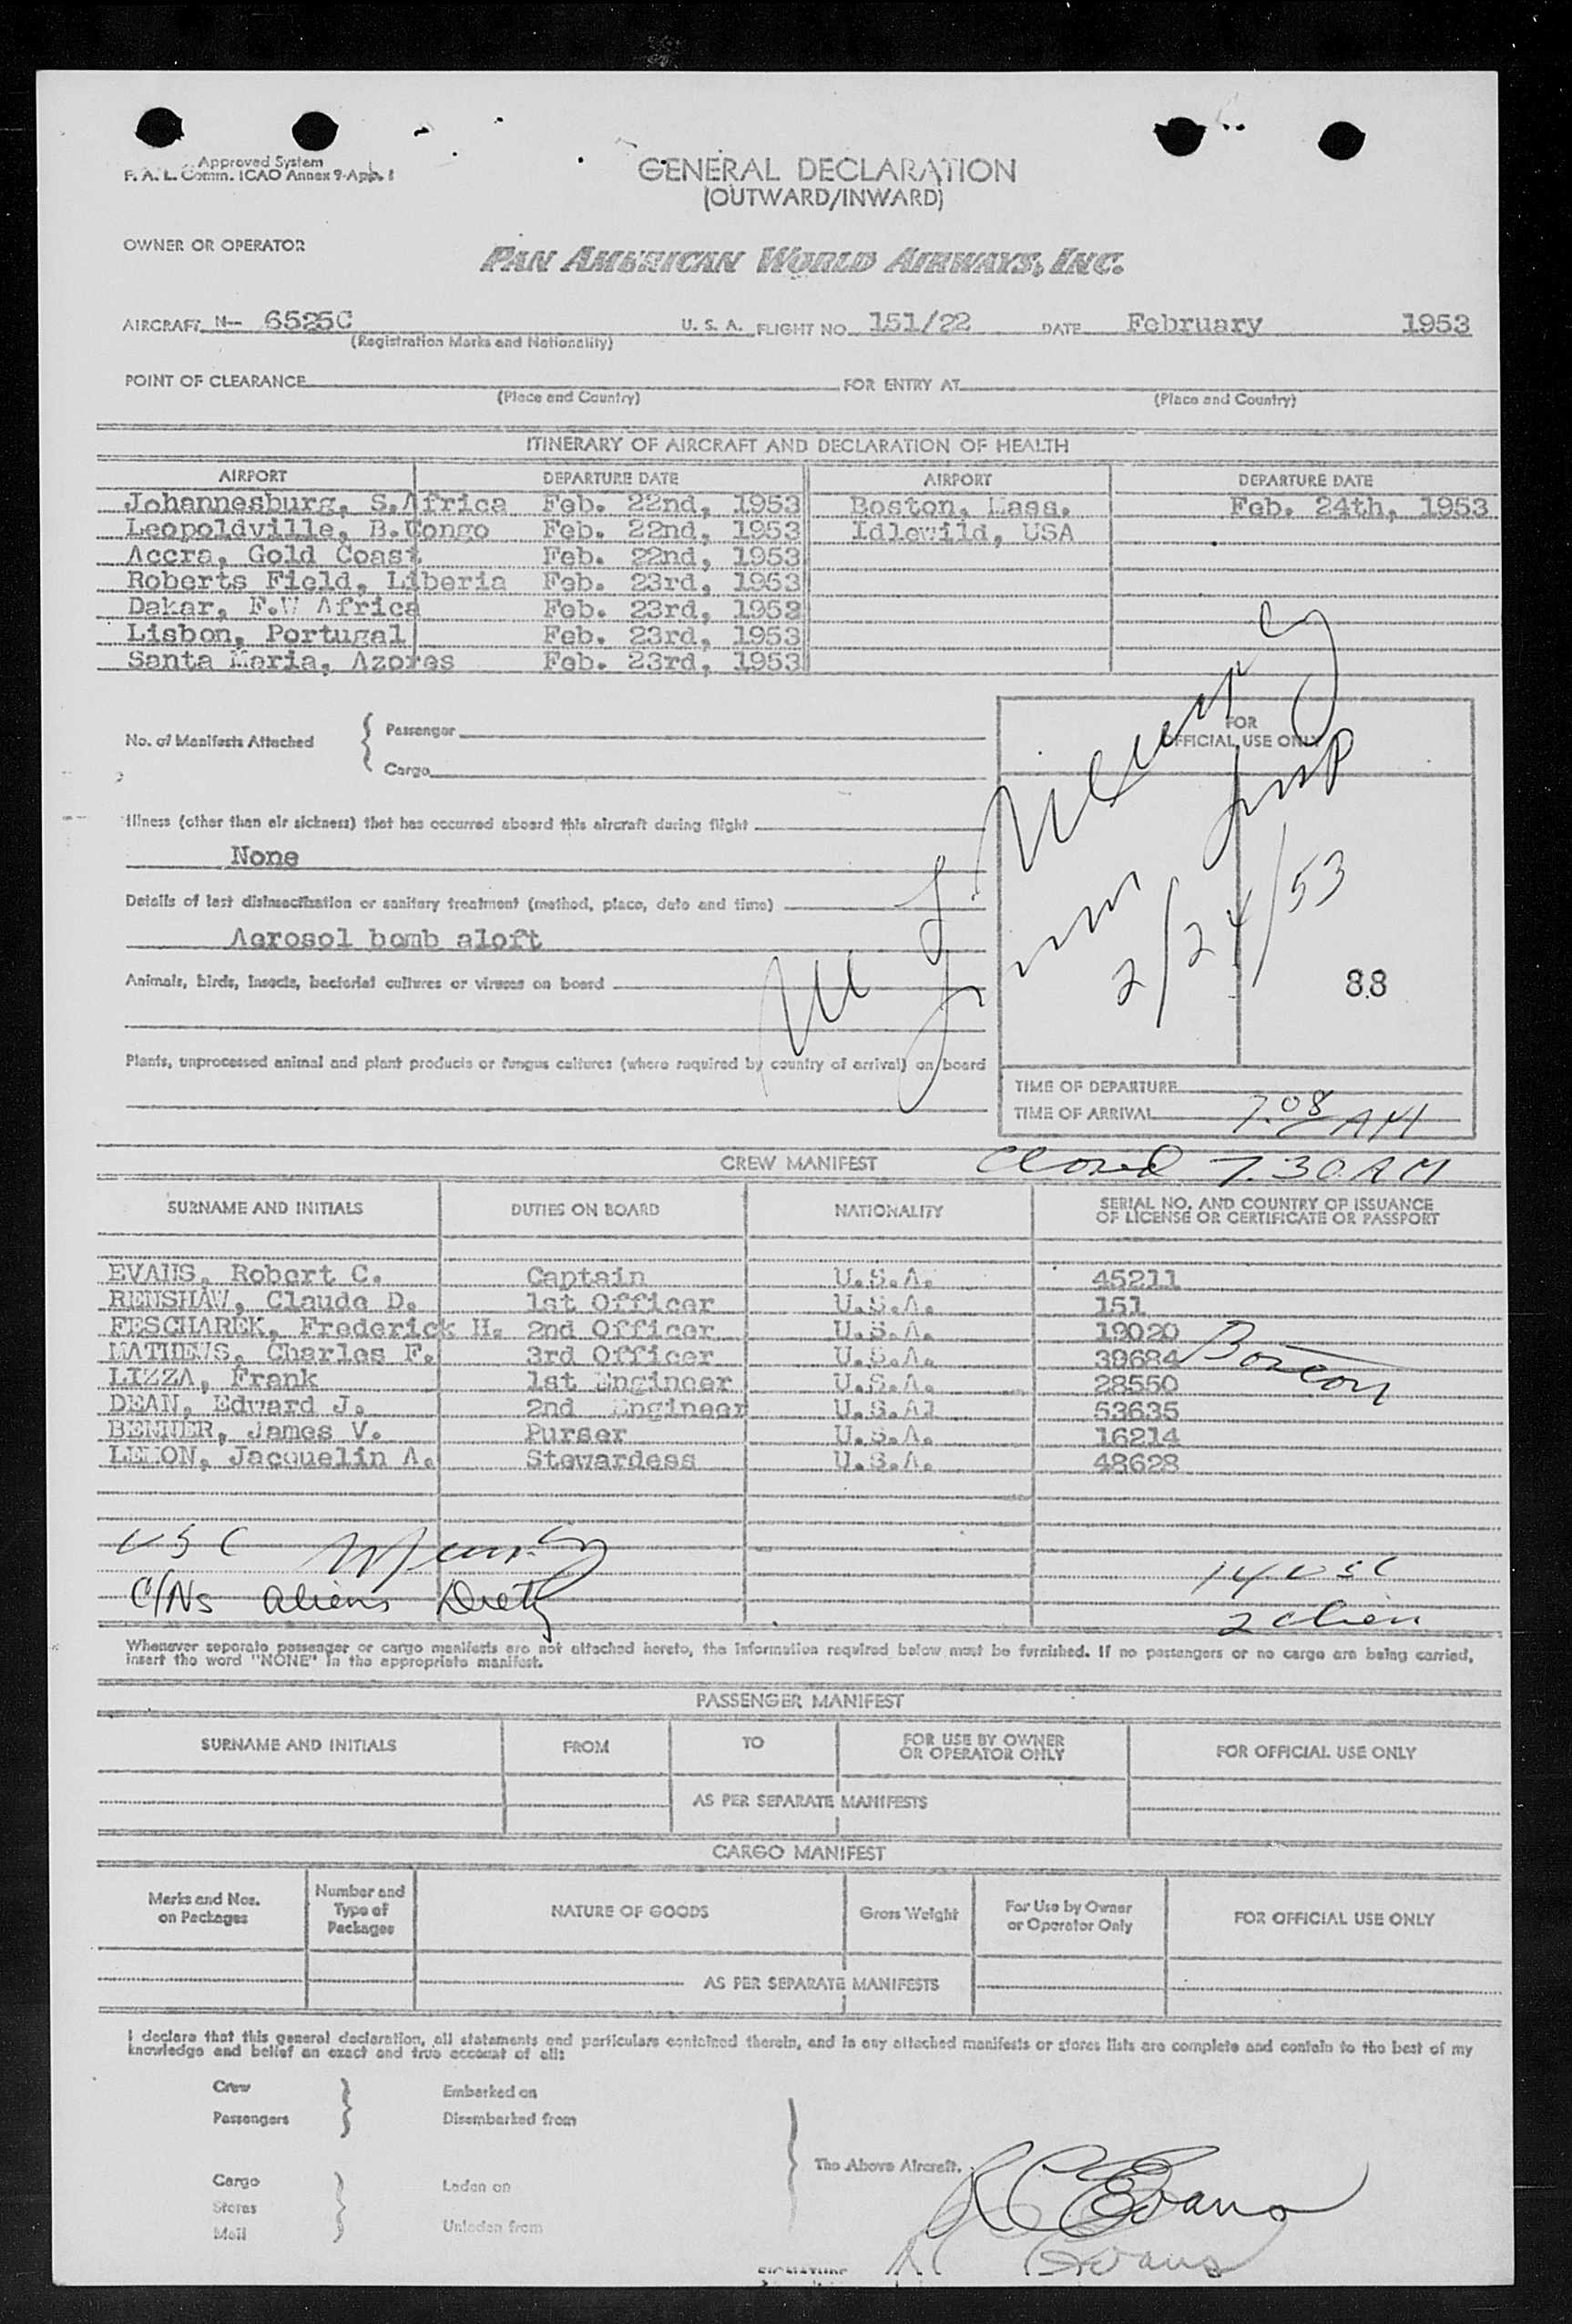 Approved System
F. A. L. Comm. ICAO Annex 9-App. 1
GENERAL DECLARATION
(OUTWARD/INWARD)
OWNER OR OPERATOR
PAN AMERICAN WORLD AIRWAYS, INC.
AIRCRAFT N-- 6525C U. S. A. FLIGHT NO. 151/22 DATE February 1953
(Registration Marks and Nationality)
POINT OF CLEARANCE FOR ENTRY AT
(Place and Country) (Place and Country)
ITINERARY OF AIRCRAFT AND DECLARATION OF HEALTH
AIRPORT DEPARTURE DATE AIRPORT DEPARTURE DATE
Johannesburg, S.Africa Feb. 22nd, 1953 Boston, Mass. Feb. 24th, 1953
Leopoldville, B.Congo Feb. 22nd, 1953 Idlewild, USA
Accra, Gold Coast Feb. 22nd, 1953
Roberts Field, Liberia Feb. 23rd, 1953
Dakar, F.W Africa Feb. 23rd, 1953
Lisbon, Portugal Feb. 23rd, 1953
Santa Maria, Azores Feb. 23rd, 1953
No. of Manifests Attached { Passenger
Cargo
FOR
OFFICIAL USE ONLY
Illness (other than air sickness) that has occurred aboard this aircraft during flight
None
Details of last disinsectization or sanitary treatment (method, place, date and time)
Aerosol bomb aloft
2/24/53
Animals, birds, insects, bacterial cultures or viruses on board
88
Plants, unprocessed animal and plant products or fungus cultures (where required by country of arrival) on board
TIME OF DEPARTURE
TIME OF ARRIVAL 7.08 AM
CREW MANIFEST closed 7.30 AM
SURNAME AND INITIALS DUTIES ON BOARD NATIONALITY SERIAL NO. AND COUNTRY OF ISSUANCE
OF LICENSE OR CERTIFICATE OR PASSPORT
EVANS, Robert C. Captain U.S.A. 45211
RENSHAW, Claude D. 1st Officer U.S.A. 151
FESCHAREK, Frederick H. 2nd Officer U.S.A. 19020
MATHEWS, Charles F. 3rd Officer U.S.A. 39684 Boston
LIZZA, Frank 1st Engineer U.S.A. 28550
DEAN, Edward J. 2nd Engineer U.S.A1 53635
BENNER, James V. Purser U.S.A. 16214
LEMON, Jacquelin A. Stewardess U.S.A. 48628
USC
14 USC
C/Ns aliens
2 alien
Whenever separate passenger or cargo manifests are not attached hereto, the information required below must be furnished. If no passengers or no cargo are being carried,
insert the word "NONE" in the appropriate manifest.
PASSENGER MANIFEST
SURNAME AND INITIALS FROM TO FOR USE BY OWNER
OR OPERATOR ONLY FOR OFFICIAL USE ONLY
AS PER SEPARATE MANIFESTS
CARGO MANIFEST
Marks and Nos.
on Packages Number and
Type of
Packages NATURE OF GOODS Gross Weight For Use by Owner
or Operator Only FOR OFFICIAL USE ONLY
AS PER SEPARATE MANIFESTS
I declare that this general declaration, all statements and particulars contained therein, and in any attached manifests or stores lists are complete and contain to the best of my
knowledge and belief an exact and true account of all:
Crew Embarked on
Passengers Disembarked from
The Above Aircraft.
Cargo Laden on
Stores
Mail Unladen from
R C Evans
R C Evans
SIGNATURE